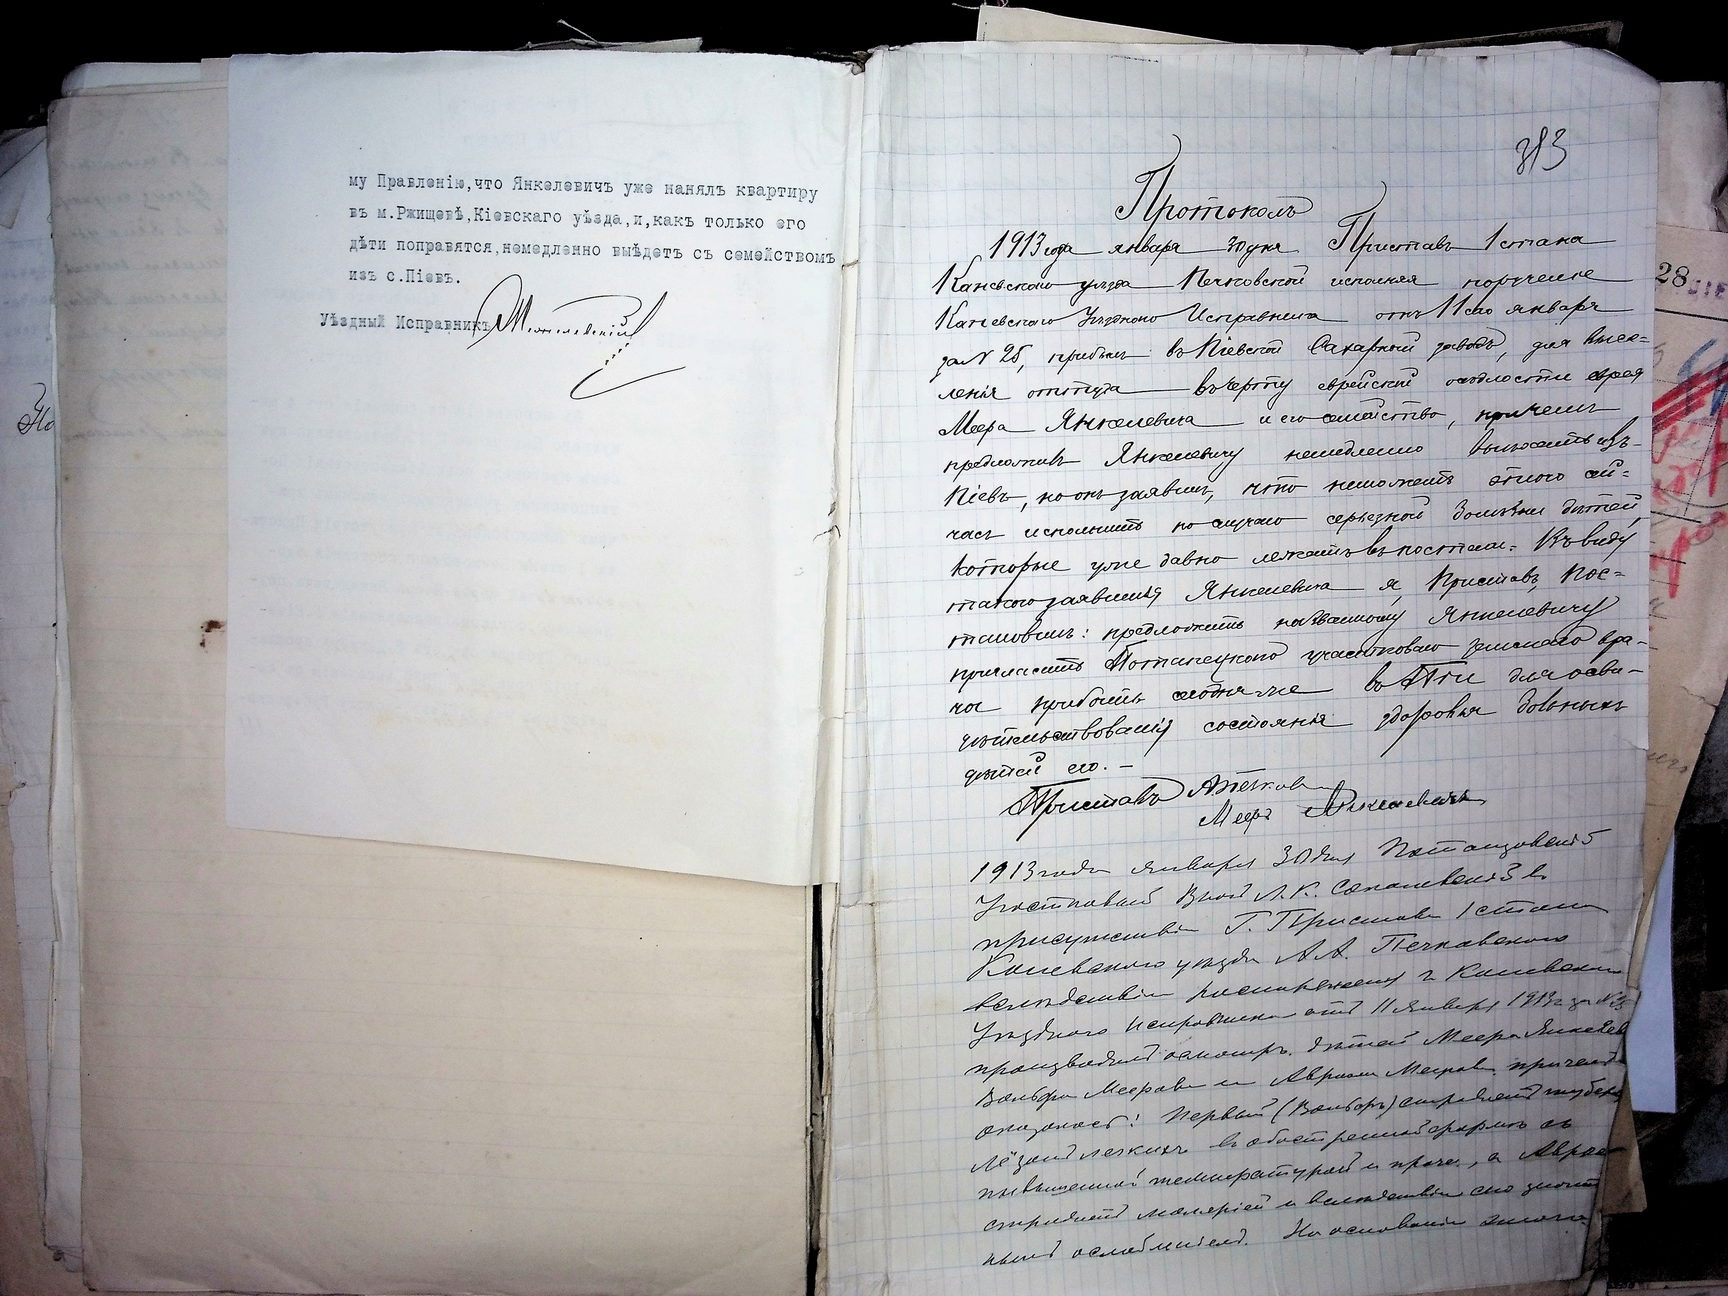 му Правленію,что Янкелевичъ уже нанялъ квартиру
въ м.Ржищевѣ,Кіевскаго уѣзда,и,какъ только его
дѣти поправятся,немедленно выѣдетъ съ семействомъ
изъ с.Піевъ.
Уѣздный Исправникъ
313
Протоколъ
1913 года января 30 дня Приставъ 1 стана
Каневскаго уѣзда Печковскій исполняя порученіе
Каневскаго Уѣзднаго Исправника отъ 11 сего января
за N 25, прибылъ въ Піевскій Сахарный заводъ, для высе-
ленія оттуда въ черту еврейской осѣдлости еврея
Меера Янкелевича и его семейство, причемъ
предложилъ Янкелевичу немедленно выѣхать изъ
Піевъ, но онъ заявилъ, что не можетъ этого сей-
часъ исполнить по случаю серьезной болѣзни дѣтей,
которые уже давно лежатъ въ постели. Въ виду
такого заявленія Янкелевича я, Приставъ, пос-
тановилъ: предложить названному Янкелевичу
пригласить Потапецкаго участковаго земскаго вра-
ча прибыть сегодня-же въ Піи для осви-
дѣтельствованія состоянія здоровья больныхъ
дѣтей его. —
Приставъ
Мееръ Янкелевичъ
1913 года января 30 дня
Участковый Врач Л.К. въ
присутствіи Г. Пристава 1 стана
Каневскаго уѣзда А.А. Печковскаго
вслѣдствіи г Каневскаго
Уѣзднаго Исправника отъ 11 января 1913 г за N 25
производилъ осмотръ дѣтей Меера
Вольфа Меерова и Аврама Меерова, причемъ
оказалось: первый (Вольфъ) страдаетъ
легкихъ въ обостренной формѣ съ
повышенной температурой и проч., а
страдаетъ маляріей и вслѣдствіи сего
ослабленъ. На основаніи